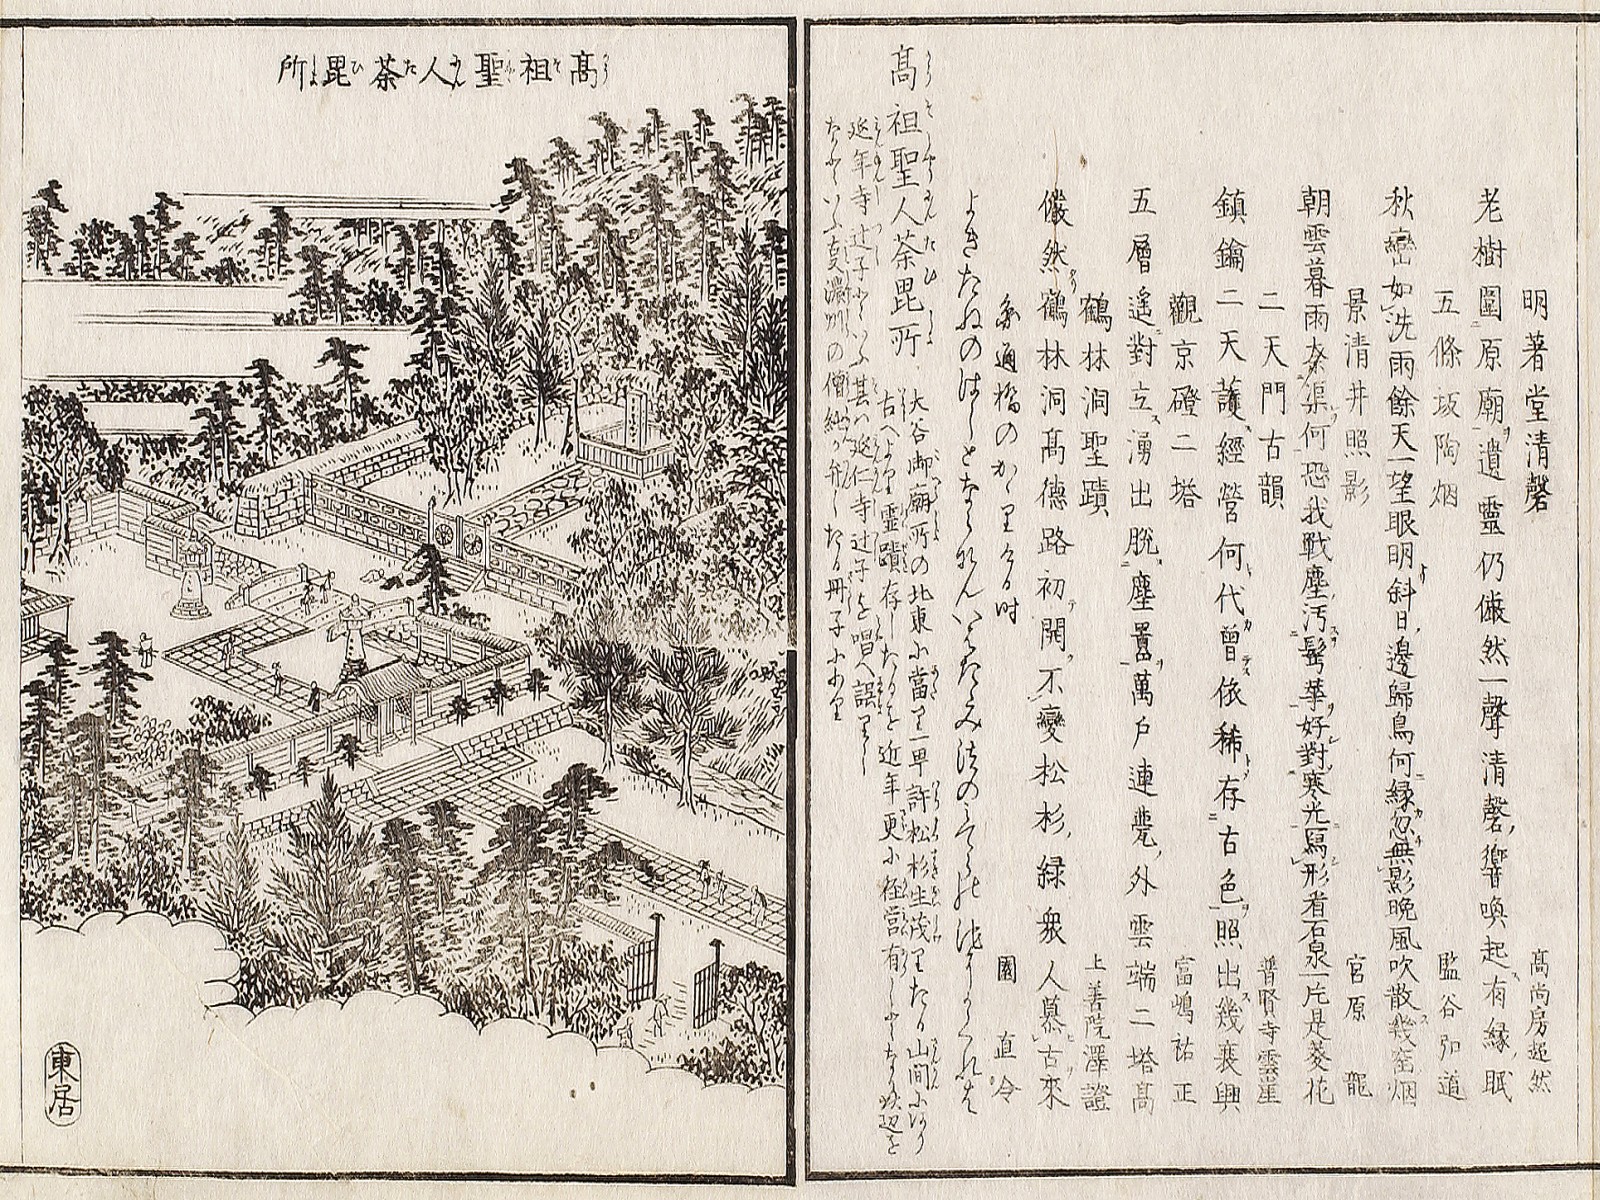 明著堂清磬
高尚房超然
老樹圍原廟遺靈仍儼然一聲清磬響喚起有縁眠
五條坂陶烟
監谷弘道
秋巒如洗雨餘天一望眼明斜日邊歸鳥何縁忽無影晩風吹散幾窑烟
景清井照影
宮原龍
朝雲暮雨奈渠何恐我戰塵汚鬂華好對寒光寫形看石泉一片是菱花
二天門古韻
普賢寺雲崖
鎮鑰二天護經營何代曾依稀存古色照出幾衰興
觀京磴二塔
富嶋祐正
五層遙對立湧出脱塵囂萬戸連甍外雲端二塔高
鶴林洞聖蹟
上善院澤證
儼然鶴林洞高德路初開不變松杉緑衆人慕古來
通橋のかゝりける時
直令
よきたねのはしとなれんいしたゝみ法の
高祖聖人荼毘所
大谷御廟所の北東に當り一丁許松杉生茂りたる山間にあり
古へより靈蹟存したるを近年更に経営有しとなり此辺を
延年寺辻子といふ其は延仁寺辻子を唱へ誤りし
なるといふ夏濃州の僧の冊子にあり
高祖聖人荼毘所
かうそしやうにんたびしよ
東居